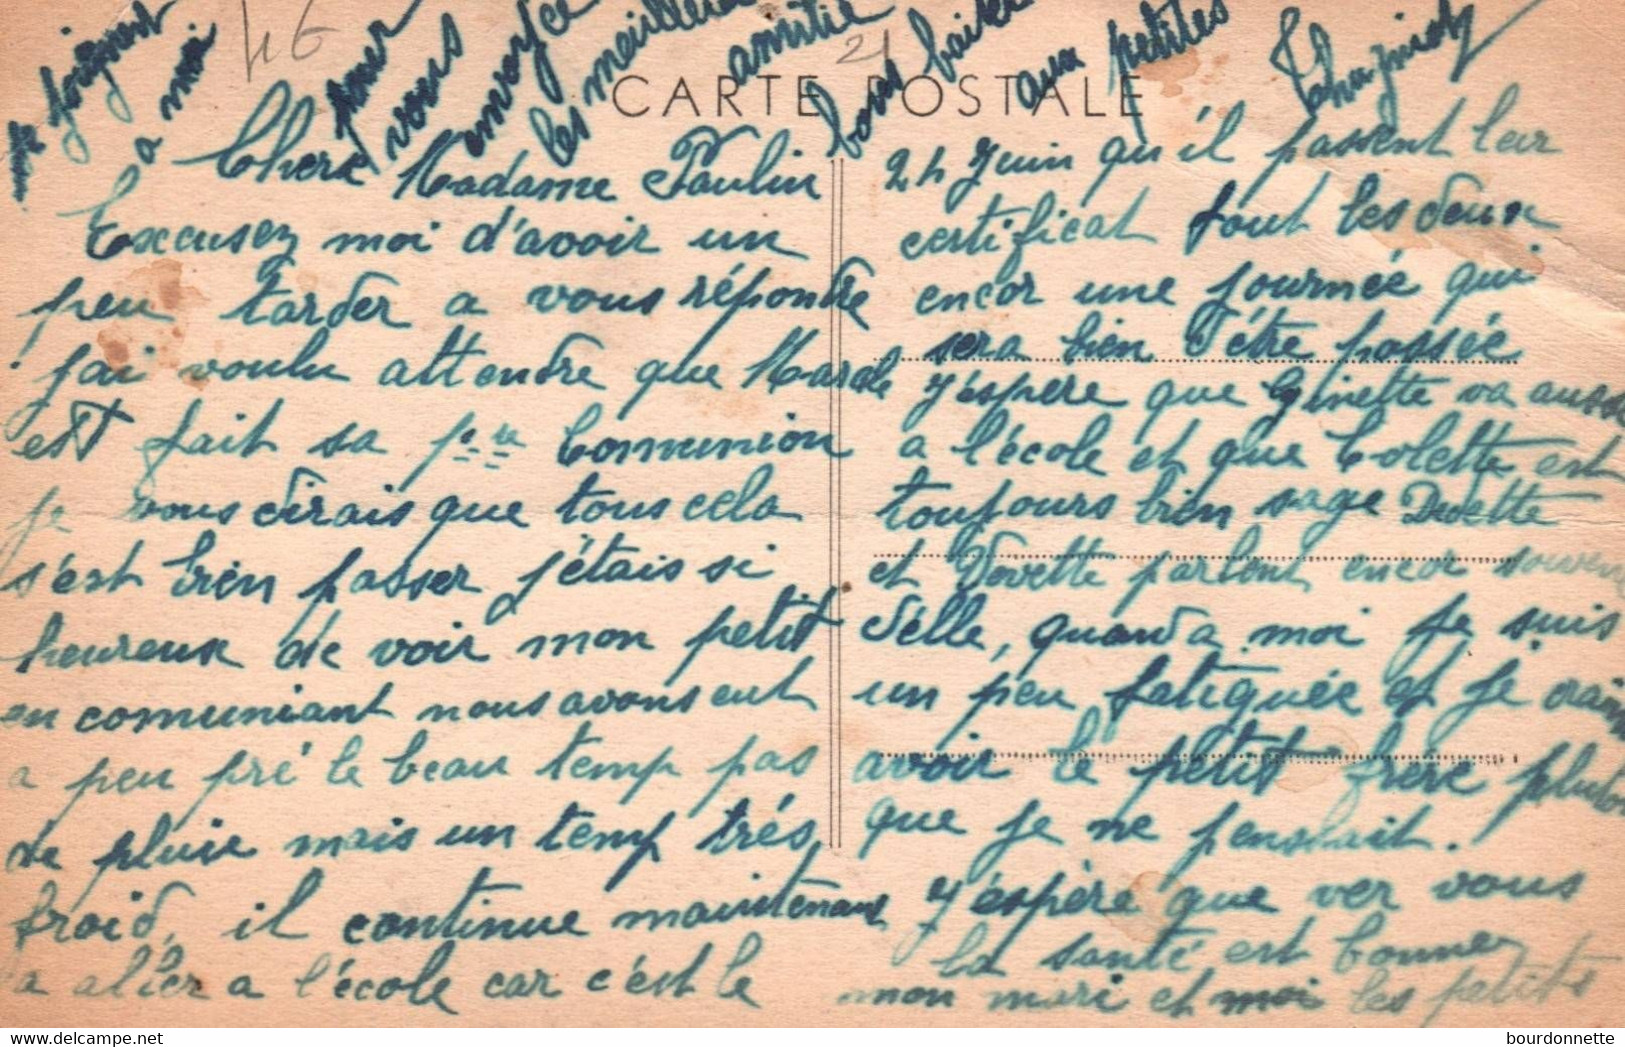 CARTE POSTALE
46
21
Chere Madame Paulin
Excusez moi d'avoir un
peu tarder a vous répondre
j'ai voulu attendre que Marcele
est fait sa p re Comunion
je vous dirais que tous cela
s'est bien passer j'étais si
heureux de voir mon petit
en comuniant nous avons eut
a peu pré le beau temp pas
de pluie mais un temp trés
froid, il continue maintenant
a aller a l'école car c'est le
24 Juin qu'il passent leur
certificat tout les deux
encor une journée qui
sera bien d'être passée
J'éspere que Ginette va aussi
a l'école et que Colette est
toujours bien sage Devette
et Dovette parlent encor souvent
d'elle, quand a moi je suis
un peu fatiguée et je crain
avoir le petit frere plutot
que je ne pensait.
J'éspère que ver vous
la santé est bonne
mon mari et moi les petits
se joignent
a moi
pour
vous
envoyée
les meilleurs
amitié
bons baisers
aux petites